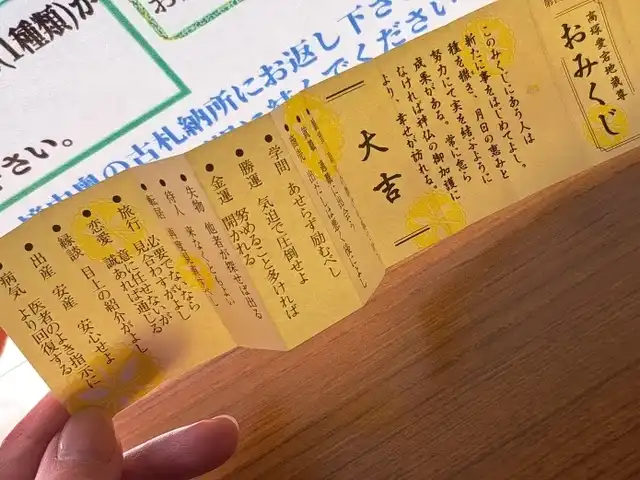 (1種類)か
さい。
の古札納所にお返し下さ
んでください
高塚愛宕地蔵尊
おみくじ
このみくじにあう人は
新たに事をはじめてよし。
種を撒き、月日の恵みと
努力にて実を結ぶように
成果がある。常に怠ら
なければ神仏の御加護に
より、幸せが訪れる。
大吉
学問 あせらず励むべし
勝運 気迫で圧倒せよ
金運 努めること多ければ
開かれる
失物 他者が探せば出る
待人
転居
旅行 必要でないなら
見合わすがよい
恋愛 誠意あれば通じる
縁談 目上の紹介がよし
出産 安産 安心せよ
病気 医者のよき指示に
より回復する